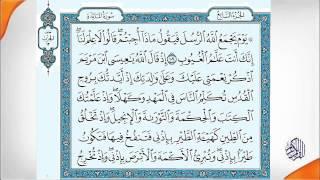 الجزء السابع
سورة المائدة
يَوْمَ يَجْمَعُ اللَّهُ الرُّسُلَ فَيَقُولُ مَاذَا أُجِبْتُمْ قَالُوا لَا عِلْمَ لَنَا
إِنَّكَ أَنْتَ عَلَّامُ الْغُيُوبِ إِذْ قَالَ اللَّهُ يَا عِيسَى ابْنَ مَرْيَمَ
اذْكُرْ نِعْمَتِي عَلَيْكَ وَعَلَى وَالِدَتِكَ إِذْ أَيَّدْتُكَ بِرُوحِ
الْقُدُسِ تُكَلِّمُ النَّاسَ فِي الْمَهْدِ وَكَهْلًا وَإِذْ عَلَّمْتُكَ
الْكِتَابَ وَالْحِكْمَةَ وَالتَّوْرَاةَ وَالْإِنْجِيلَ وَإِذْ تَخْلُقُ
مِنَ الطِّينِ كَهَيْئَةِ الطَّيْرِ بِإِذْنِي فَتَنْفُخُ فِيهَا فَتَكُونُ
طَيْرًا بِإِذْنِي وَتُبْرِئُ الْأَكْمَهَ وَالْأَبْرَصَ بِإِذْنِي وَإِذْ تُخْرِجُ